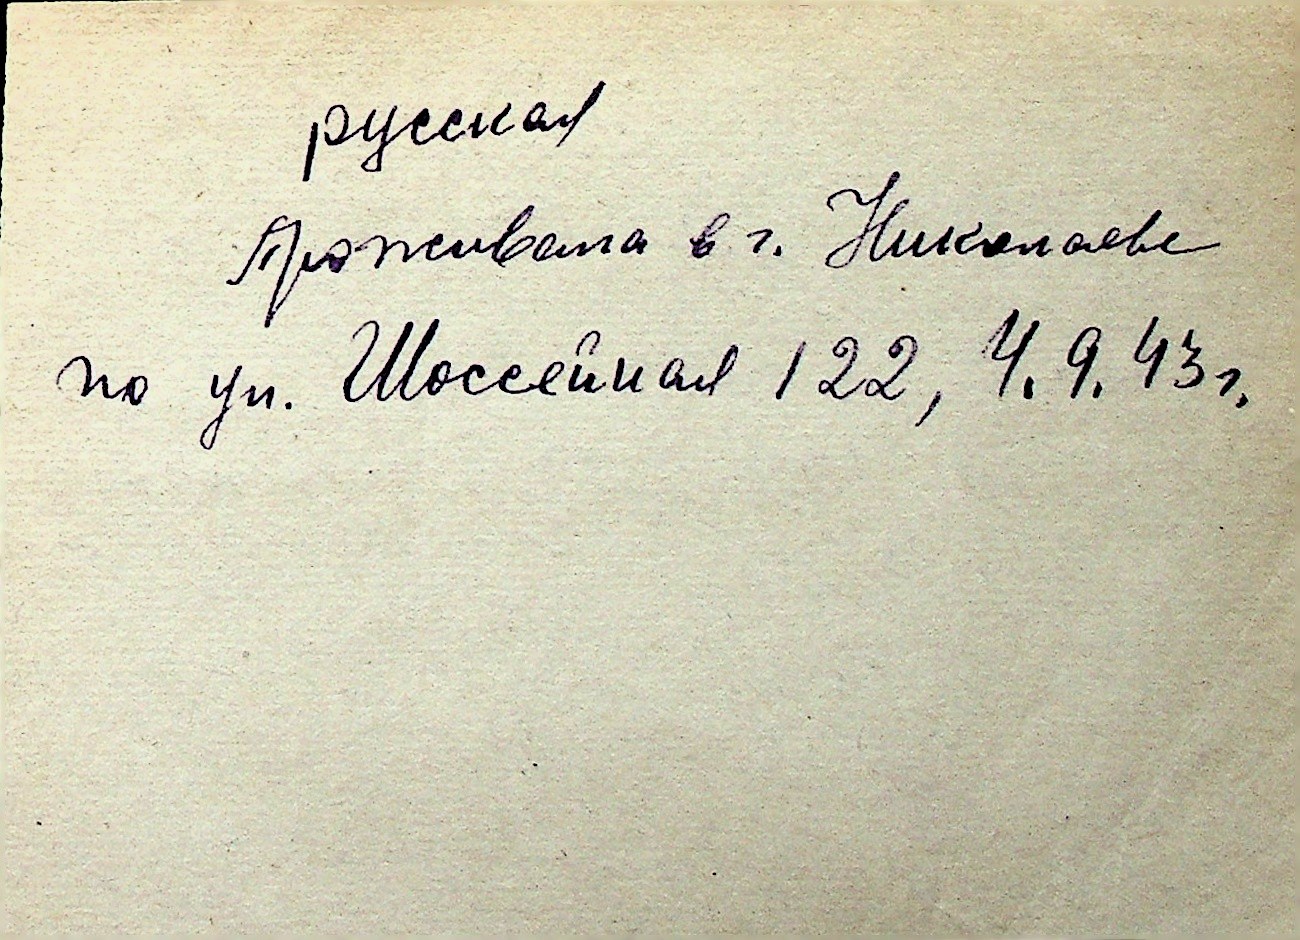 русская
Проживала в г. Николаеве
по ул. Шоссейная 122, 4.9.43 г.